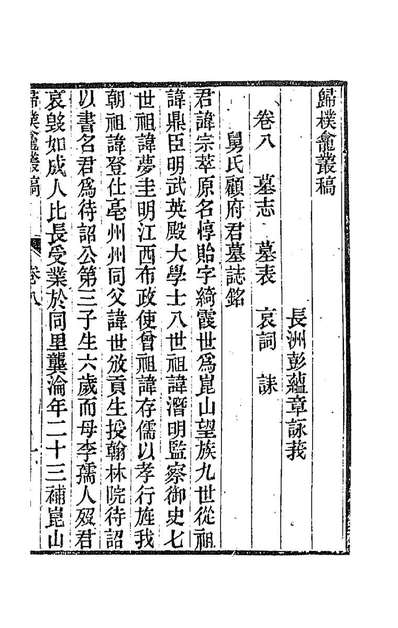 歸樸龕叢稿
長洲彭蘊章詠莪
卷八　墓志　墓表　哀詞　誄
舅氏顧府君墓誌銘
君諱宗萃原名惇貽字綺霞世爲崑山望族九世從祖
諱鼎臣明武英殿大學士八世祖諱潛明監察御史七
世祖諱夢圭明江西布政使曾祖諱存儒以孝行旌我
朝祖諱登仕亳州州同父諱世放貢生授翰林院待詔
以書名君爲待詔公第三子生六歲而母李孺人歿君
哀毀如成人比長受業於同里龔淪年二十三補崑山
歸樸龕叢稿
卷八
一